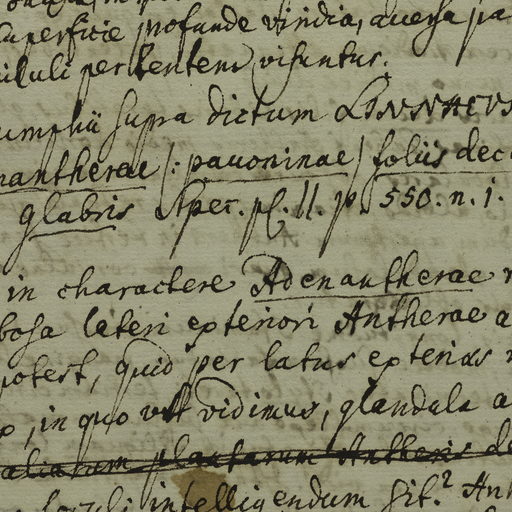 superficie profunde viridia, aversa pa
per lentem visuntur.
umphii supra dictum LINNAEUS
nantherae /: pavoninae / foliis dec
glabris Spec. pl. II. p. 550. n. 1.
in charactere Adenantherae
bosa lateri exteriori Antherae a
potest, quid per latus exterius
in quo ut vidimus, glandula a
aliarum plantarum Antheris de
loculi intelligendum sit.² Ant